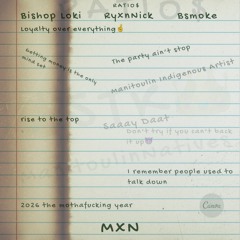 RATIO$
Bishop Loki RyxnNick Bsmoke
Loyalty over everything🤞
The party ain't stop
Getting money is the only
mind set
Manitoulin indigenous Artist
rise to the top
Saaay Daat
Don't try if you can't back
it up😈
ManitoulinNative
I remember people used to
talk down
2026 the mothafucking year
Canva
MXN